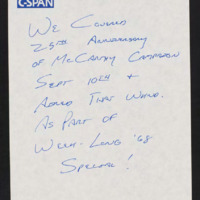 C-SPAN
We Covered
25th Anniversary
of McCarthy Campaign
Sept 10th +
Aired That Week.
As Part of
Week-Long '68
Special!